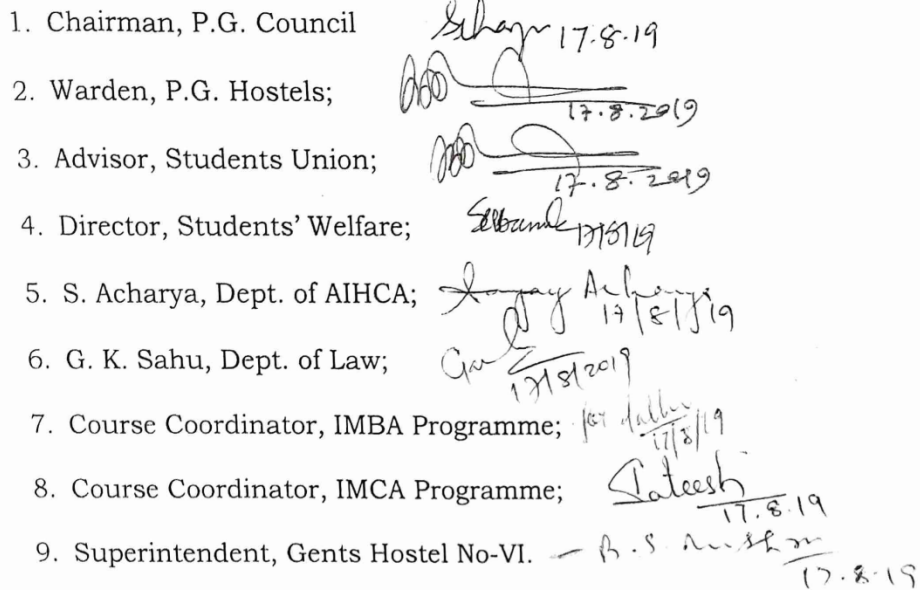 1. Chairman, P.G. Council 17.8.19
2. Warden, P.G. Hostels; 17.8.2019
3. Advisor, Students Union; 17.8.2019
4. Director, Students' Welfare; 17/8/19
5. S. Acharya, Dept. of AIHCA; Sanjay Acharya 17/8/19
6. G. K. Sahu, Dept. of Law; 17/8/2019
7. Course Coordinator, IMBA Programme; for 17/8/19
8. Course Coordinator, IMCA Programme; 17.8.19
9. Superintendent, Gents Hostel No-VI. - 17.8.19